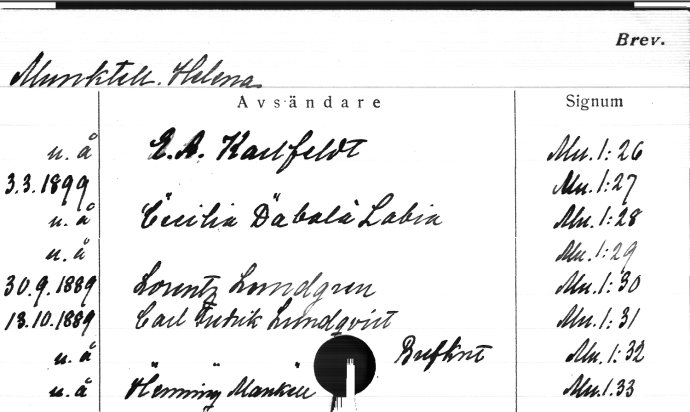 Brev.
Munktell. Helena.
Avsändare Signum
u. å E. A. Karlfeldt Mu. 1:26
3.3.1899 Mu. 1:27
u. å Cecilia Labia Mu. 1:28
u. å Mu. 1:29
30.9.1889 Lorentz Lundgren Mu. 1:30
13.10.1889 Carl Fredrik Lundqvist Mu. 1:31
u. å " " " Mu. 1:32
u. å Henning Mankell Mu. 1.33